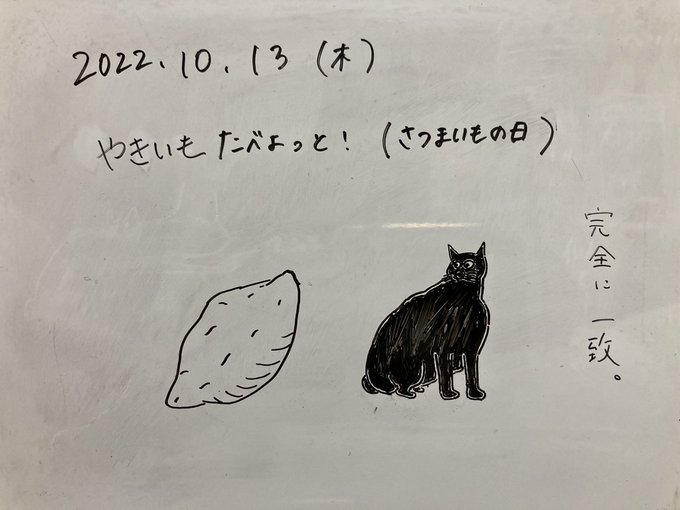 2022.10.13 (木)
やきいも たべよっと! (さつまいもの日)
完全に一致。